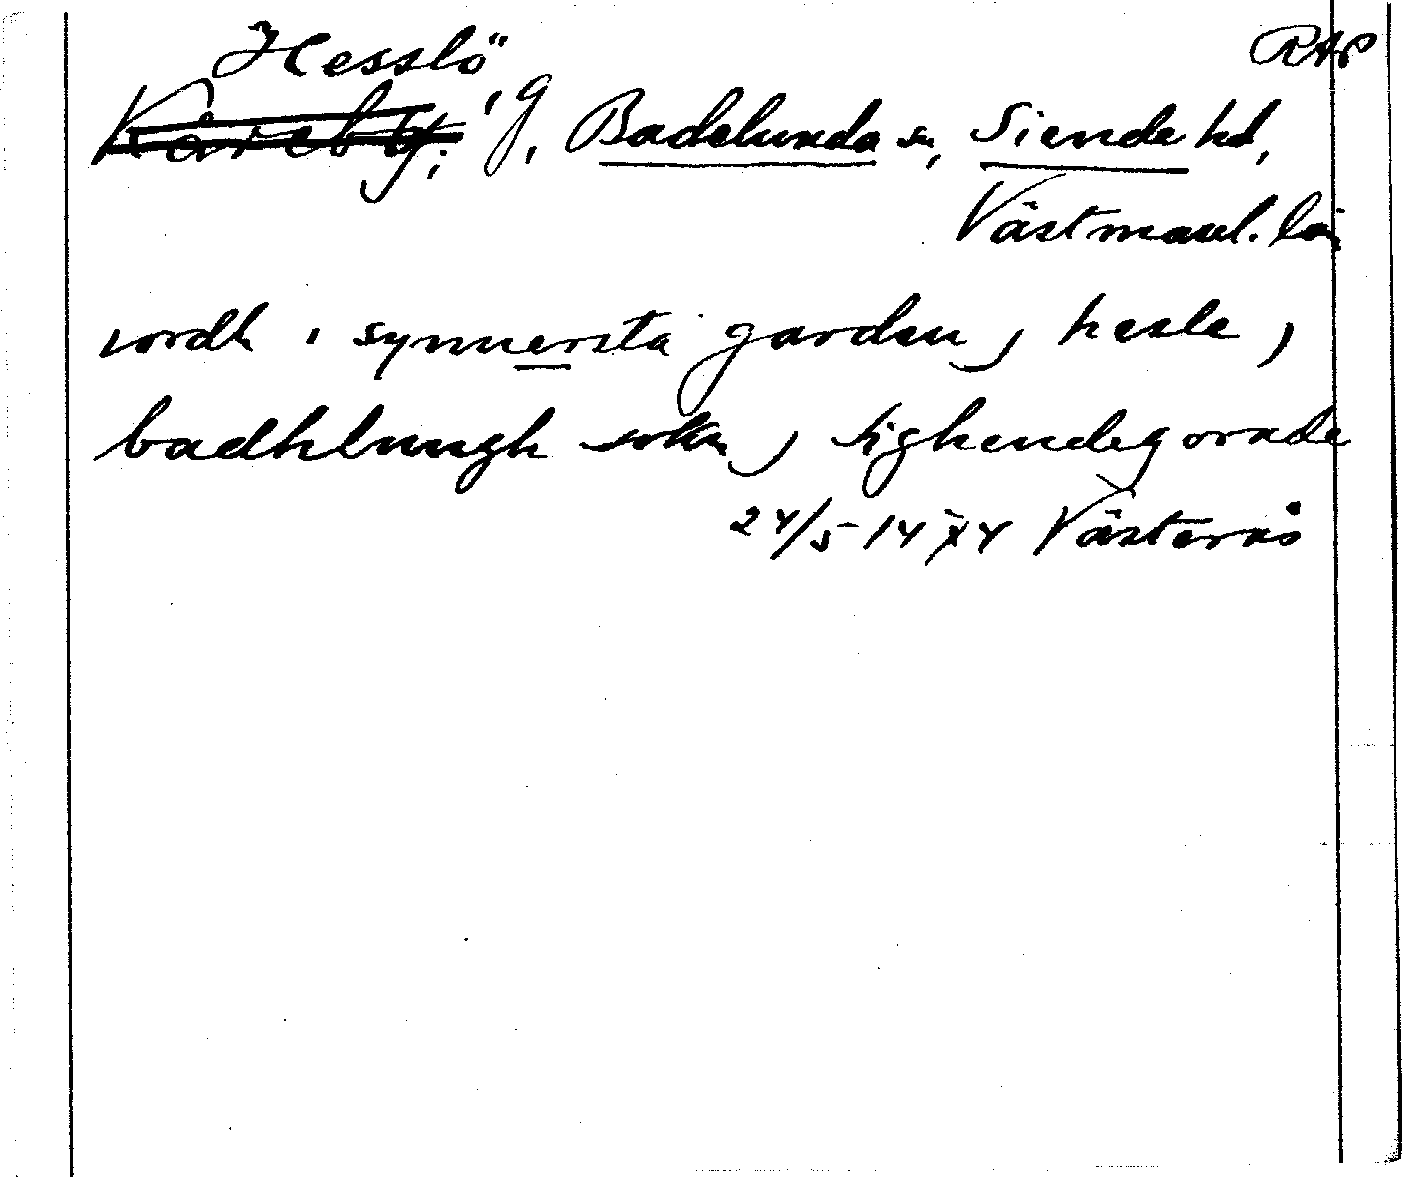 Hesslö RAP
Kåreby, g, Badelunda sn, Siende hd,
Västmanl. län
iordh i synnersta garden, hesle,
badhlungh sokn, sighende
24/5 1444 Västerås